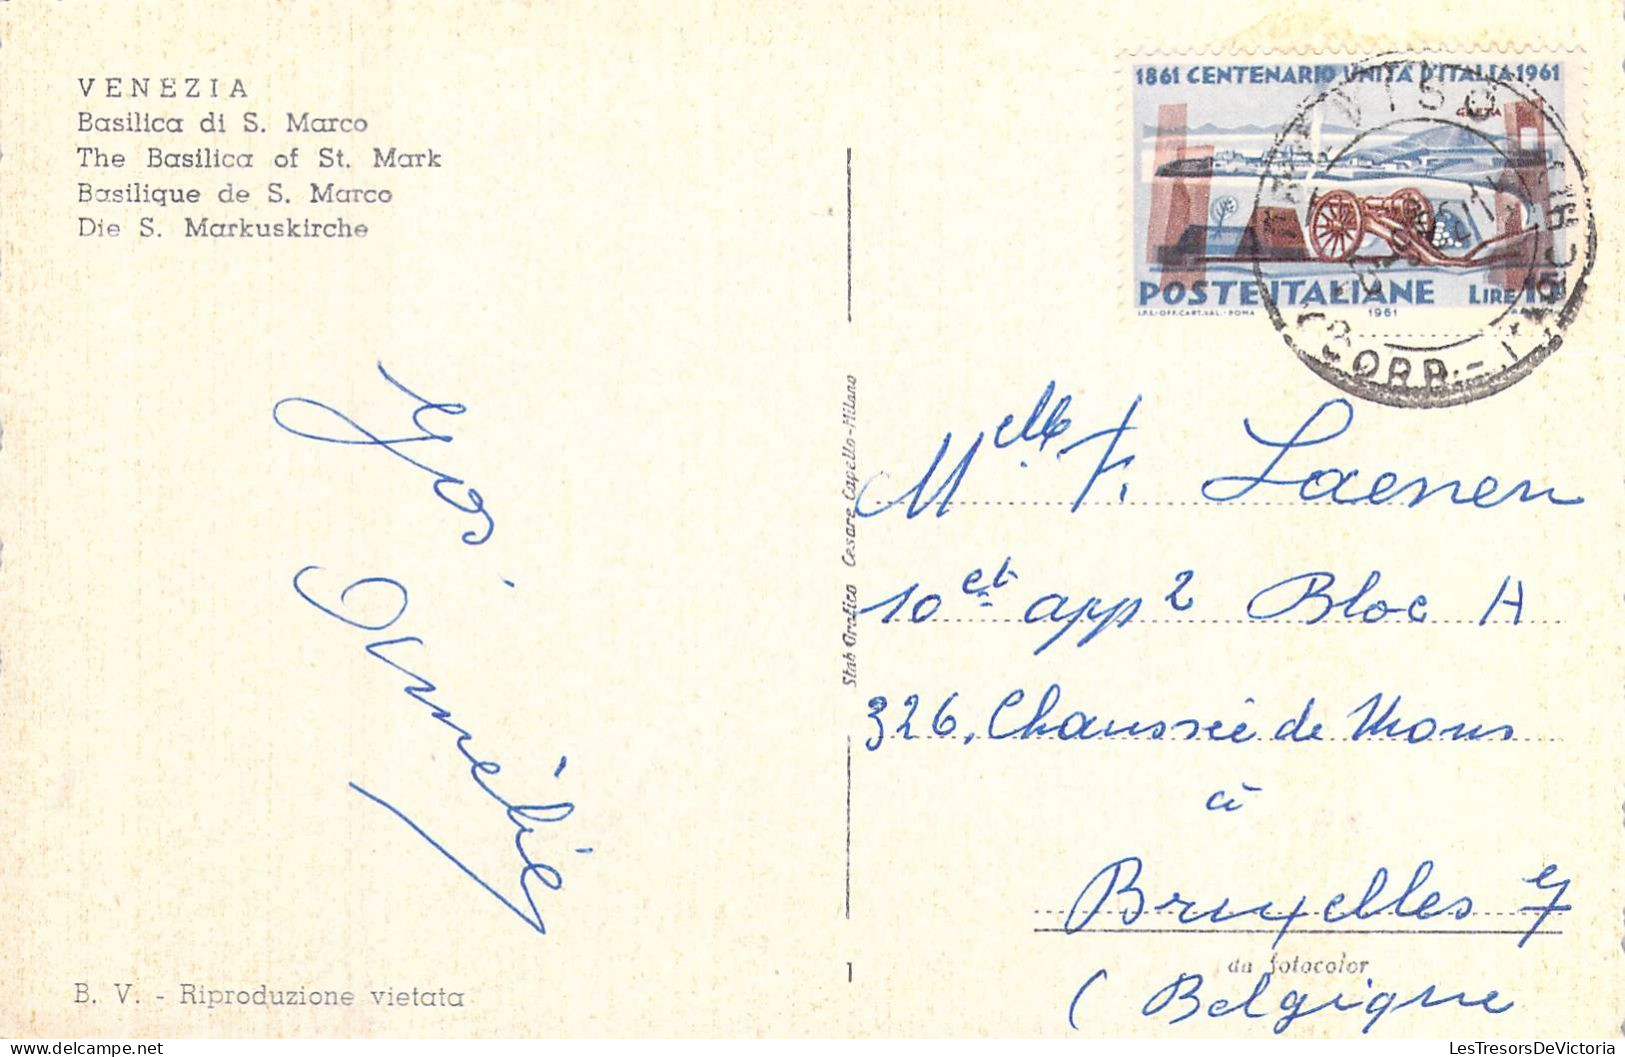 VENEZIA
Basilica di S. Marco
The Basilica of St. Mark
Basilique de S. Marco
Die S. Markuskirche
1861 CENTENARIO UNITÀ D'ITALIA 1961
GAETA
POSTE ITALIANE LIRE 15
I.P.S.-OFF.CART.VAL.-ROMA 1961
TREVISO
CORR.
Stab Grafico Cesare Capello-Milano
Melle F. Laenen
10 et app 2 Bloc A
326, Chaussée de Mons
à
Bruxelles 7
(Belgique
da fotocolor
1
B. V. - Riproduzione vietata
LesTresorsDeVictoria